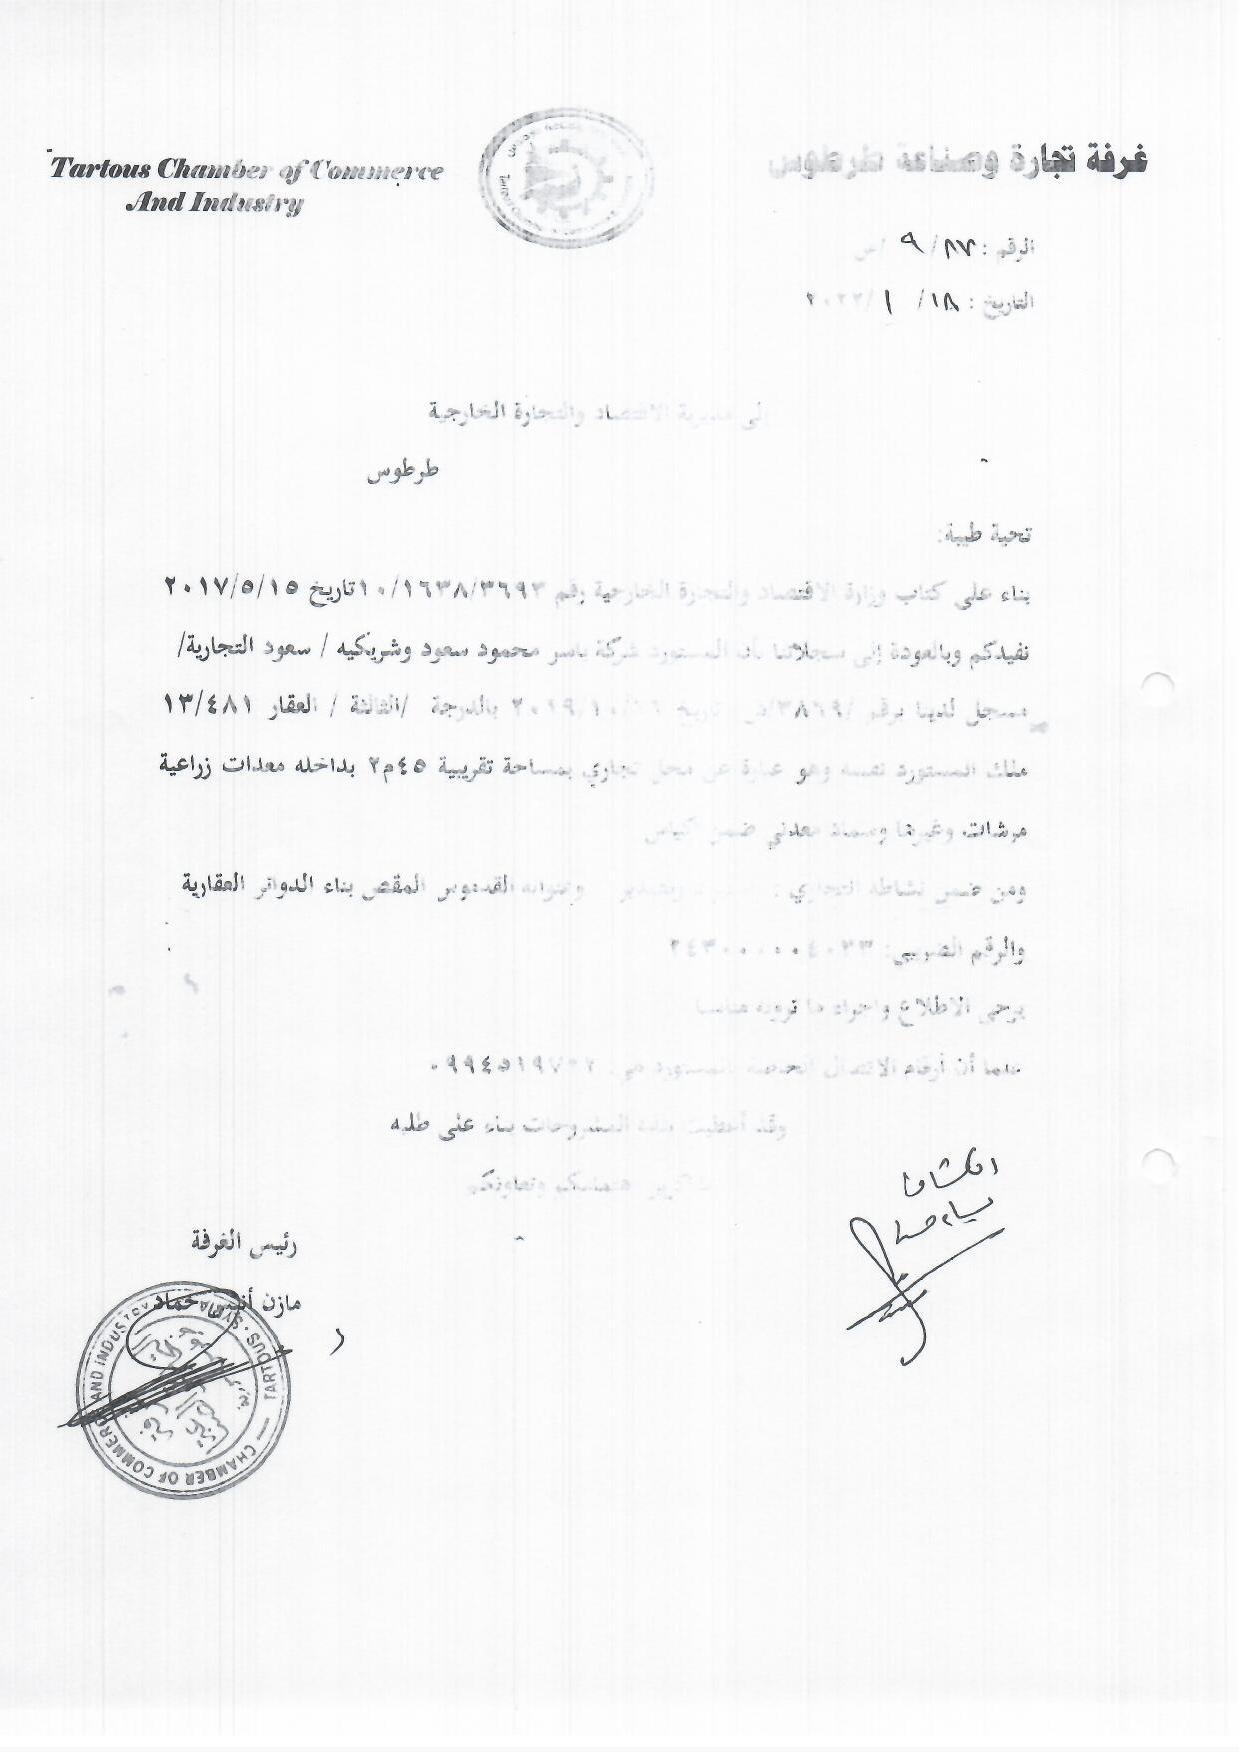 غرفة تجارة وصناعة طرطوس
Tartous Chamber of Commerce
And Industry
الرقم : ٨٧/ ٩ /ص
التاريخ : ١٨/ ١ /٢٠٢٢
إلى مديرية الاقتصاد والتجارة الخارجية
طرطوس
تحية طيبة:
بناء على كتاب وزارة الاقتصاد والتجارة الخارجية رقم ١٠/١٦٣٨/٣٦٩٣ تاريخ ٢٠١٧/٥/١٥
نفيدكم وبالعودة إلى سجلاتنا بأن المستورد شركة ياسر محمود سعود وشريكيه / سعود التجارية/
مسجل لدينا برقم /٣٨٦٩/ تاريخ ٢٠١٩/١٠/١٦ بالدرجة /الثالثة / العقار ١٣/٤٨١
ملك المستورد نفسه وهو عبارة عن محل تجاري بمساحة تقريبية ٤٥م٢ بداخله معدات زراعية
مرشات وغيرها وسماد معدني ضمن أكياس
ومن ضمن نشاطه التجاري : وتصدير وعنوانه القدموس المقص بناء الدوائر العقارية
والرقم الضريبي:
يرجى الاطلاع واجراء ما ترونه مناسبا
علما أن أرقام الاتصال الخاصة بالمستورد هي:
وقد أعطيت هذه المشروحات بناء على طلبه
شاكرين اهتمامكم وتعاونكم
رئيس الغرفة
مازن أنيس حماد
TARTOUS - CHAMBER OF COMMERCE AND INDUSTRY SYRIA